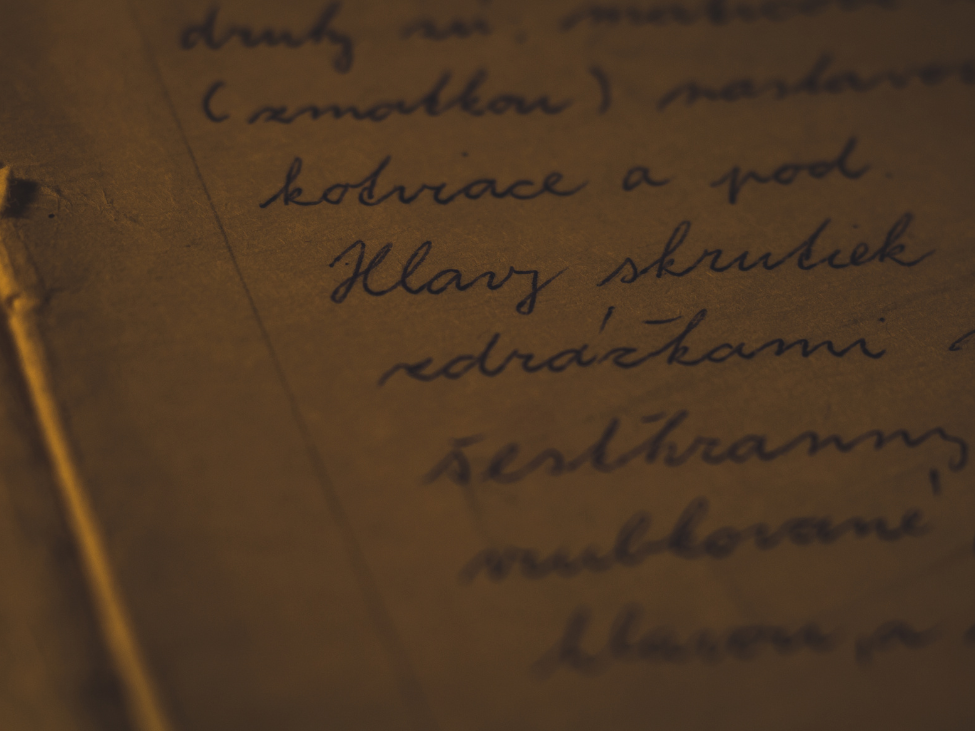 druhy sú, maticové
(zmatkou) nastavov
kotviace a pod.
Hlavy skrutiek
zdrážkami
šesťhranný
vrubkované
hlavou, s